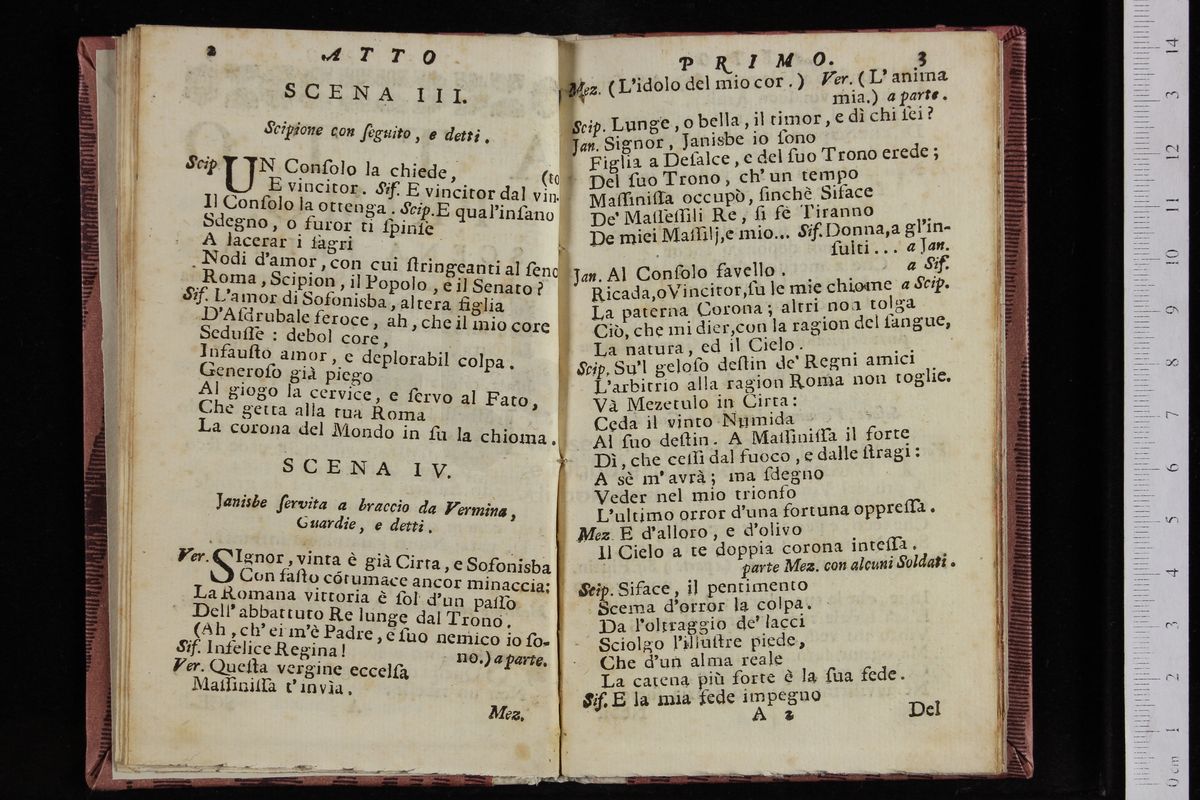 2 ATTO
SCENA III.
Scipione con ſeguito, e detti.
Scip UN Conſolo la chiede, (to
E vincitor. Sif. E vincitor dal vin-
Il Conſolo la ottenga. Scip. E qual'inſano
Sdegno, o furor ti ſpinſe
A lacerar i ſagri
Nodi d'amor, con cui ſtringeanti al ſeno
Roma, Scipion, il Popolo, e il Senato?
Sif. L'amor di Sofonisba, altera figlia
D'Aſdrubale feroce, ah, che il mio core
Seduſſe: debol core,
Infauſto amor, e deplorabil colpa.
Generoſo già piego
Al giogo la cervice, e ſervo al Fato,
Che getta alla tua Roma
La corona del Mondo in ſu la chioma.
SCENA IV.
Janisbe ſervita a braccio da Vermina,
Guardie, e detti.
Ver. SIgnor, vinta è già Cirta, e Sofonisba
Con faſto cõtumace ancor minaccia:
La Romana vittoria è ſol d'un paſſo
Dell' abbattuto Re lunge dal Trono.
(Ah, ch' ei m'è Padre, e ſuo nemico io ſo-
Sif. Infelice Regina! no.) a parte.
Ver. Queſta vergine eccelſa
Maſſiniſſa t' invìa.
Mez.
PRIMO. 3
Mez. (L'idolo del mio cor.) Ver. (L' anima
mia.) a parte.
Scip. Lunge, o bella, il timor, e dì chi ſei?
Jan. Signor, Janisbe io ſono
Figlia a Deſalce, e del ſuo Trono erede;
Del ſuo Trono, ch' un tempo
Maſſiniſſa occupò, ſinchè Siface
De' Maſſeſſili Re, ſi fè Tiranno
De miei Maſſilj, e mio... Sif. Donna, a gl'in-
ſulti... a Jan.
Jan. Al Conſolo favello. a Sif.
Ricada, o Vincitor, ſu le mie chiome a Scip.
La paterna Corona; altri non tolga
Ciò, che mi dier, con la ragion del ſangue,
La natura, ed il Cielo.
Scip. Su'l geloſo deſtin de' Regni amici
L'arbitrio alla ragion Roma non toglie.
Và Mezetulo in Cirta:
Ceda il vinto Numida
Al ſuo deſtin. A Maſſiniſſa il forte
Dì, che ceſſi dal fuoco, e dalle ſtragi:
A sè m' avrà; ma ſdegno
Veder nel mio trionfo
L'ultimo orror d'una fortuna oppreſſa.
Mez. E d'alloro, e d'olivo
Il Cielo a te doppia corona inteſſa.
parte Mez. con alcuni Soldati.
Scip. Siface, il pentimento
Scema d'orror la colpa.
Da l'oltraggio de' lacci
Sciolgo l'illuſtre piede,
Che d'un alma reale
La catena più forte è la ſua fede.
Sif. E la mia fede impegno
A 2 Del
0 cm 1 2 3 4 5 6 7 8 9 10 11 12 3 14